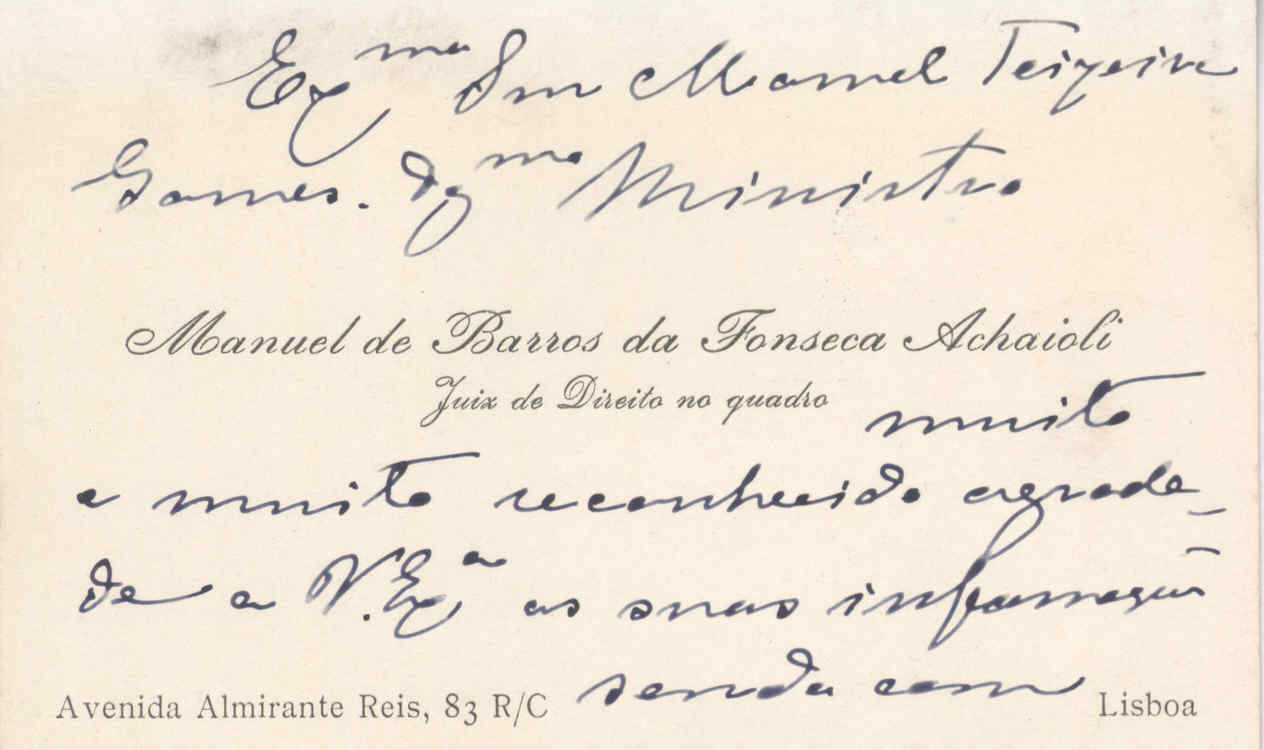 Exmo Snr Manuel Teixeira
Gomes. Dgmo Ministro
Manuel de Barros da Fonseca Achaioli
Juiz de Direito no quadro
muito
e muito reconhecido agrade-
de a V. Exa as suas informações
sendo com
Avenida Almirante Reis, 83 R/C
Lisboa